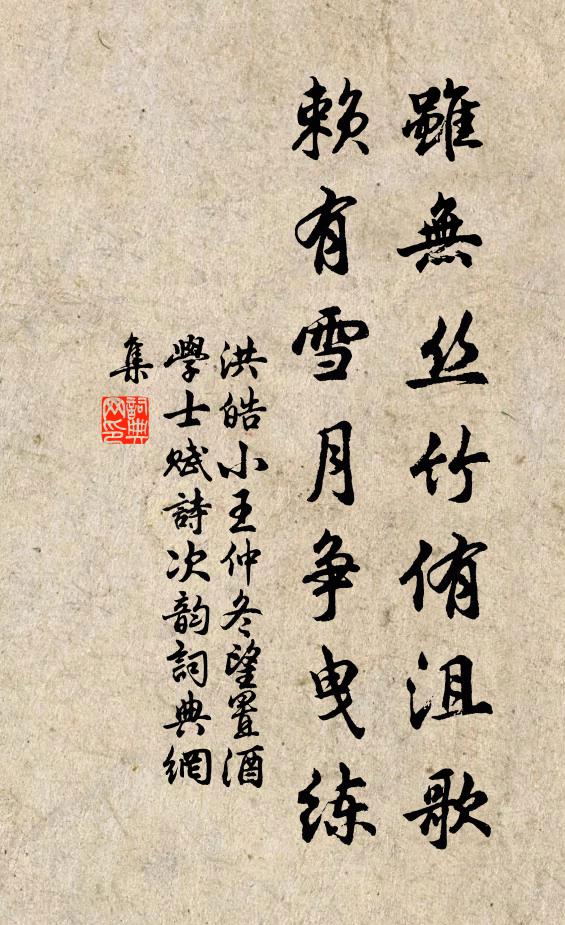 雖無丝竹侑沮歌
赖有雪月争曳练
洪皓小王仲冬望置酒
學士赋詩次韵詞典網
集
詞典网印